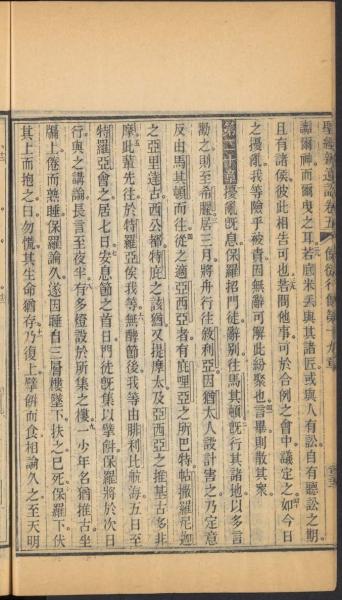 聖經新遺詔卷五 使徒行傳第十九章
讟爾神而爾曳之耳若底米丟與其諸匠或與人有訟自有聽訟之期
且有諸侯彼此相告可也若問他事可於合例之會中議定之如今日
之擾亂我等險乎被責因無辭可解此紛聚也言畢則散其衆
第二十章擾亂既息保羅招門徒辭別往馬其頓既行其諸地以多言
勸之則至希臘居三月將舟行往敘利亞因猶太人設計害之乃定意
反由馬其頓而往從之適亞西亞者有庇哩亞之所巴特帖撒羅尼迦
之亞里達古西公都特庇之該猶又提摩太及亞西亞之推基古多非
摩此輩先往於特羅亞俟我等無酵節後我等由腓利比航海五日至
特羅亞會之居七日安息節之首日門徒既集以擘餅保羅將於次日
行與之講論長言至夜半有多燈設於所集之樓一少年名猶推古坐
牖上倦而熟睡保羅論久遂因睡自三層樓墜下扶之已死保羅下伏
其上而抱之曰勿慌其生命猶存乃復上擘餅而食相論久之至天明